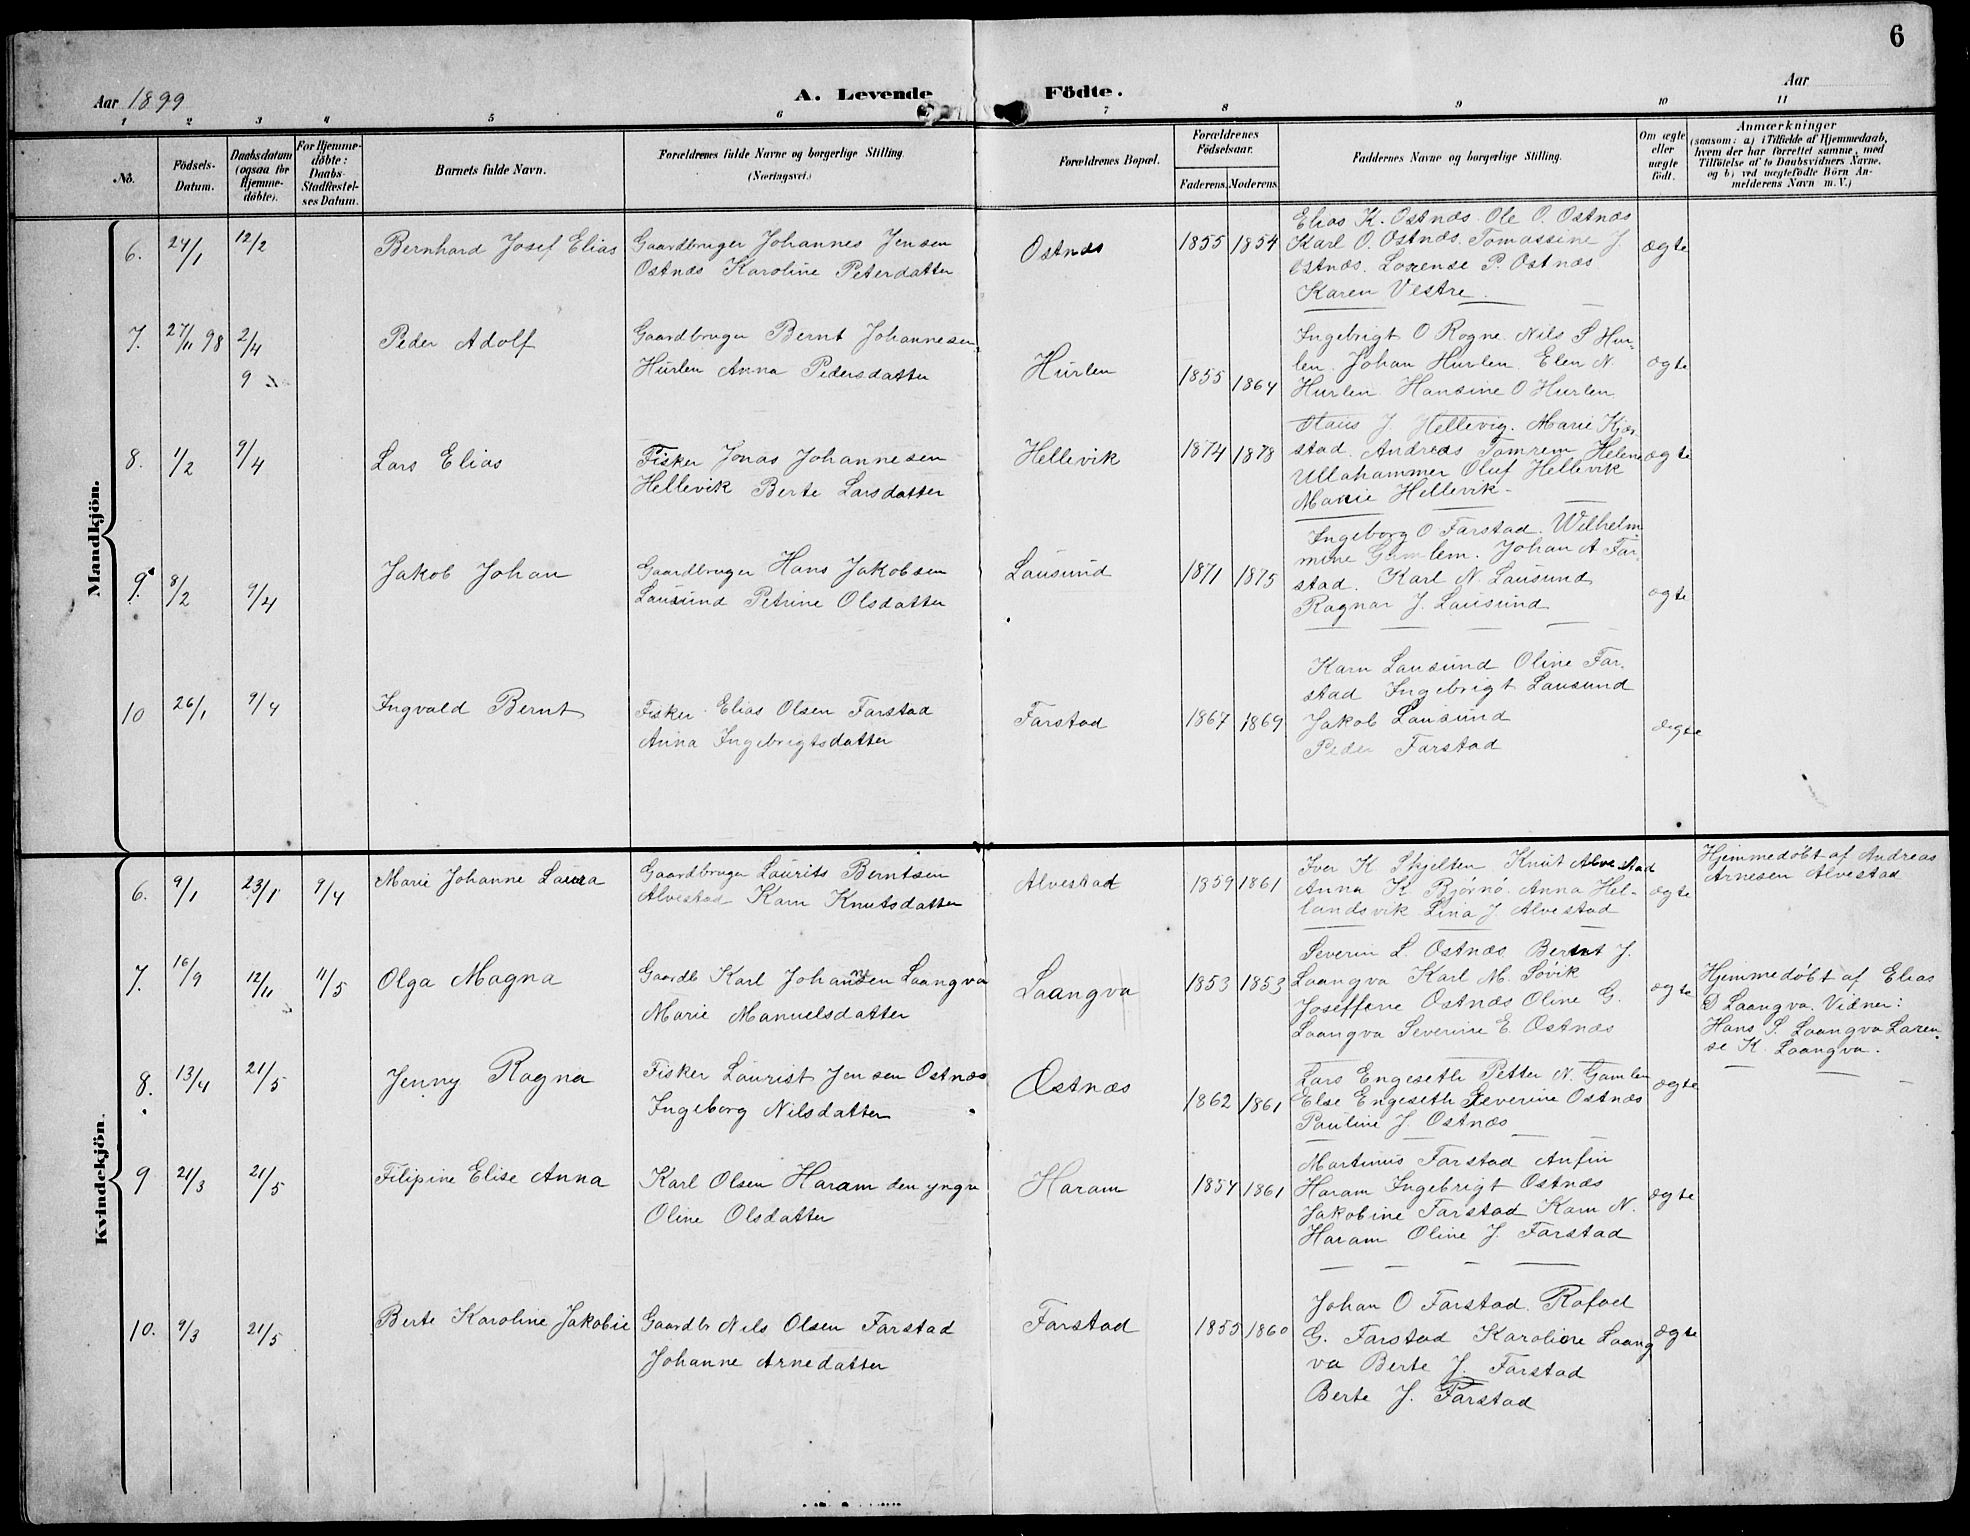 6
Aar 1899
A. Levende Födte.
Aar
1 2 3 4 5 6 7 8 9 10 11
No.
Födsels-Datum.
Daabsdatum (ogsaa for Hjemme-döbte).
For Hjemme-döbte: Daabs-Stadfæstel-ses Datum.
Barnets fulde Navn.
Forældrenes fulde Navne og borgerlige Stilling.
(Næringsvei.)
Forældrenes Bopæl.
Forældrenes Födselsaar.
Faderens. Moderens.
Faddernes Navne og borgerlige Stilling.
Om ægte eller uægte födt.
Anmærkninger
(saasom: a) i Tilfælde af Hjemmedaab,
hvem der har forrettet samme, med
Tilföielse af to Daabsvidners Navne,
og b) ved uægtefödte Börn An-
melderens Navn m. V.)
Mandkjön.
6. 24/1 12/2 Bernhard Josef Elias
Gaardbruger Johannes Jensen
Ostnæs Karoline Petersdatter
Ostnæs 1855 1854
Elias K. Ostnæs. Ole O. Ostnæs
Karl O. Ostnæs. Tomassine J
Ostnæs. Lorense P. Ostnæs
Karen Vestre.
ægte
7. 27/11 98 2/4
9
Peder Adolf
Gaardbruger Bernt Johannesen
Hurlen Anna Pedersdatter
Hurlen 1855 1864
Ingebrigt O Rogne Nils S Hur-
len. Johan Hurlen. Elen N.
Hurlen. Hansine O Hurlen
ægte
8. 1/2 9/4 Lars Elias
Fisker Jonas Johannesen
Hellevik Berte Larsdatter
Hellevik 1874 1878
J. Hellevig. Marie Kjær
stad. Andreas Tomrem Helene
Ullahammer Oluf Hellevik
Marie Hellevik-
ægte
9. 8/2 9/4 Jakob Johan
Gaardbruger Hans Jakobsen
Lausund Petrine Olsdatter
Lausund 1871 1875
Ingeborg O Farstad. Wilhelm
mine Gamlem. Johan A Far
stad. Karl N. Lausund
Ragnar J. Lausund
ægte
10 26/1 9/4 Ingvald Bernt
Fisker Elias Olsen Farstad
Anna Ingebrigtsdatter
Farstad 1867 1869
Karn Lausund Oline Far.
stad Ingebrigt Lausund
Jakob Lausund
Peder Farstad
ægte
Kvindekjön.
6. 9/1 23/1 9/4 Marie Johanne Laura
Gaardbruger Laurits Berntsen
Alvestad Karn Knutsdatter
Alvestad 1859 1861
Iver K. Skjelten Knut Alvestad
Anna K Bjørnø. Anna Hel-
landsvik Lina J. Alvestad
ægte
Hjemmedøbt af Andreas
Arnesen Alvestad
7. 16/9 12/11 11/5 Olga Magna
Gaardb Karl Johansen Laangva
Marie Manuelsdatter
Laangva 1853 1853
Severin L. Ostnæs Bernt J.
Laangva Karl M. Søvik
Joseffine Ostnæs Oline G.
Laangva Severine E. Ostnæs
ægte
Hjemmedøbt af Elias
D Laangva. Vidner:
Hans S. Laangva Laren
se K. Laangva.
8. 13/4 21/5 Jenny Ragna
Fisker Laurist Jensen Ostnæs
Ingeborg Nilsdatter
Østnæs 1862 1861
Lars Engeseth Petter N. Gamlem
Else Engeseth Severine Ostnæs
Pauline J. Ostnæs
ægte
9 21/3 21/5 Filipine Elise Anna
Karl Olsen Haram den yngre
Oline Olsdatter
Haram 1854 1861
Martinus Farstad Anfin
Haram Ingebrigt Ostnæs
Jakobine Farstad Karn N.
Haram Oline J. Farstad
ægte
10. 9/3 21/5 Berte Karoline Jakobie
Gaardbr Nils Olsen Farstad
Johanne Arnedatter
Farstad 1855 1860
Johan O Farstad. Rafael
G. Farstad Karoline Laang
va Berte J. Farstad
Berte J. Farstad
ægte